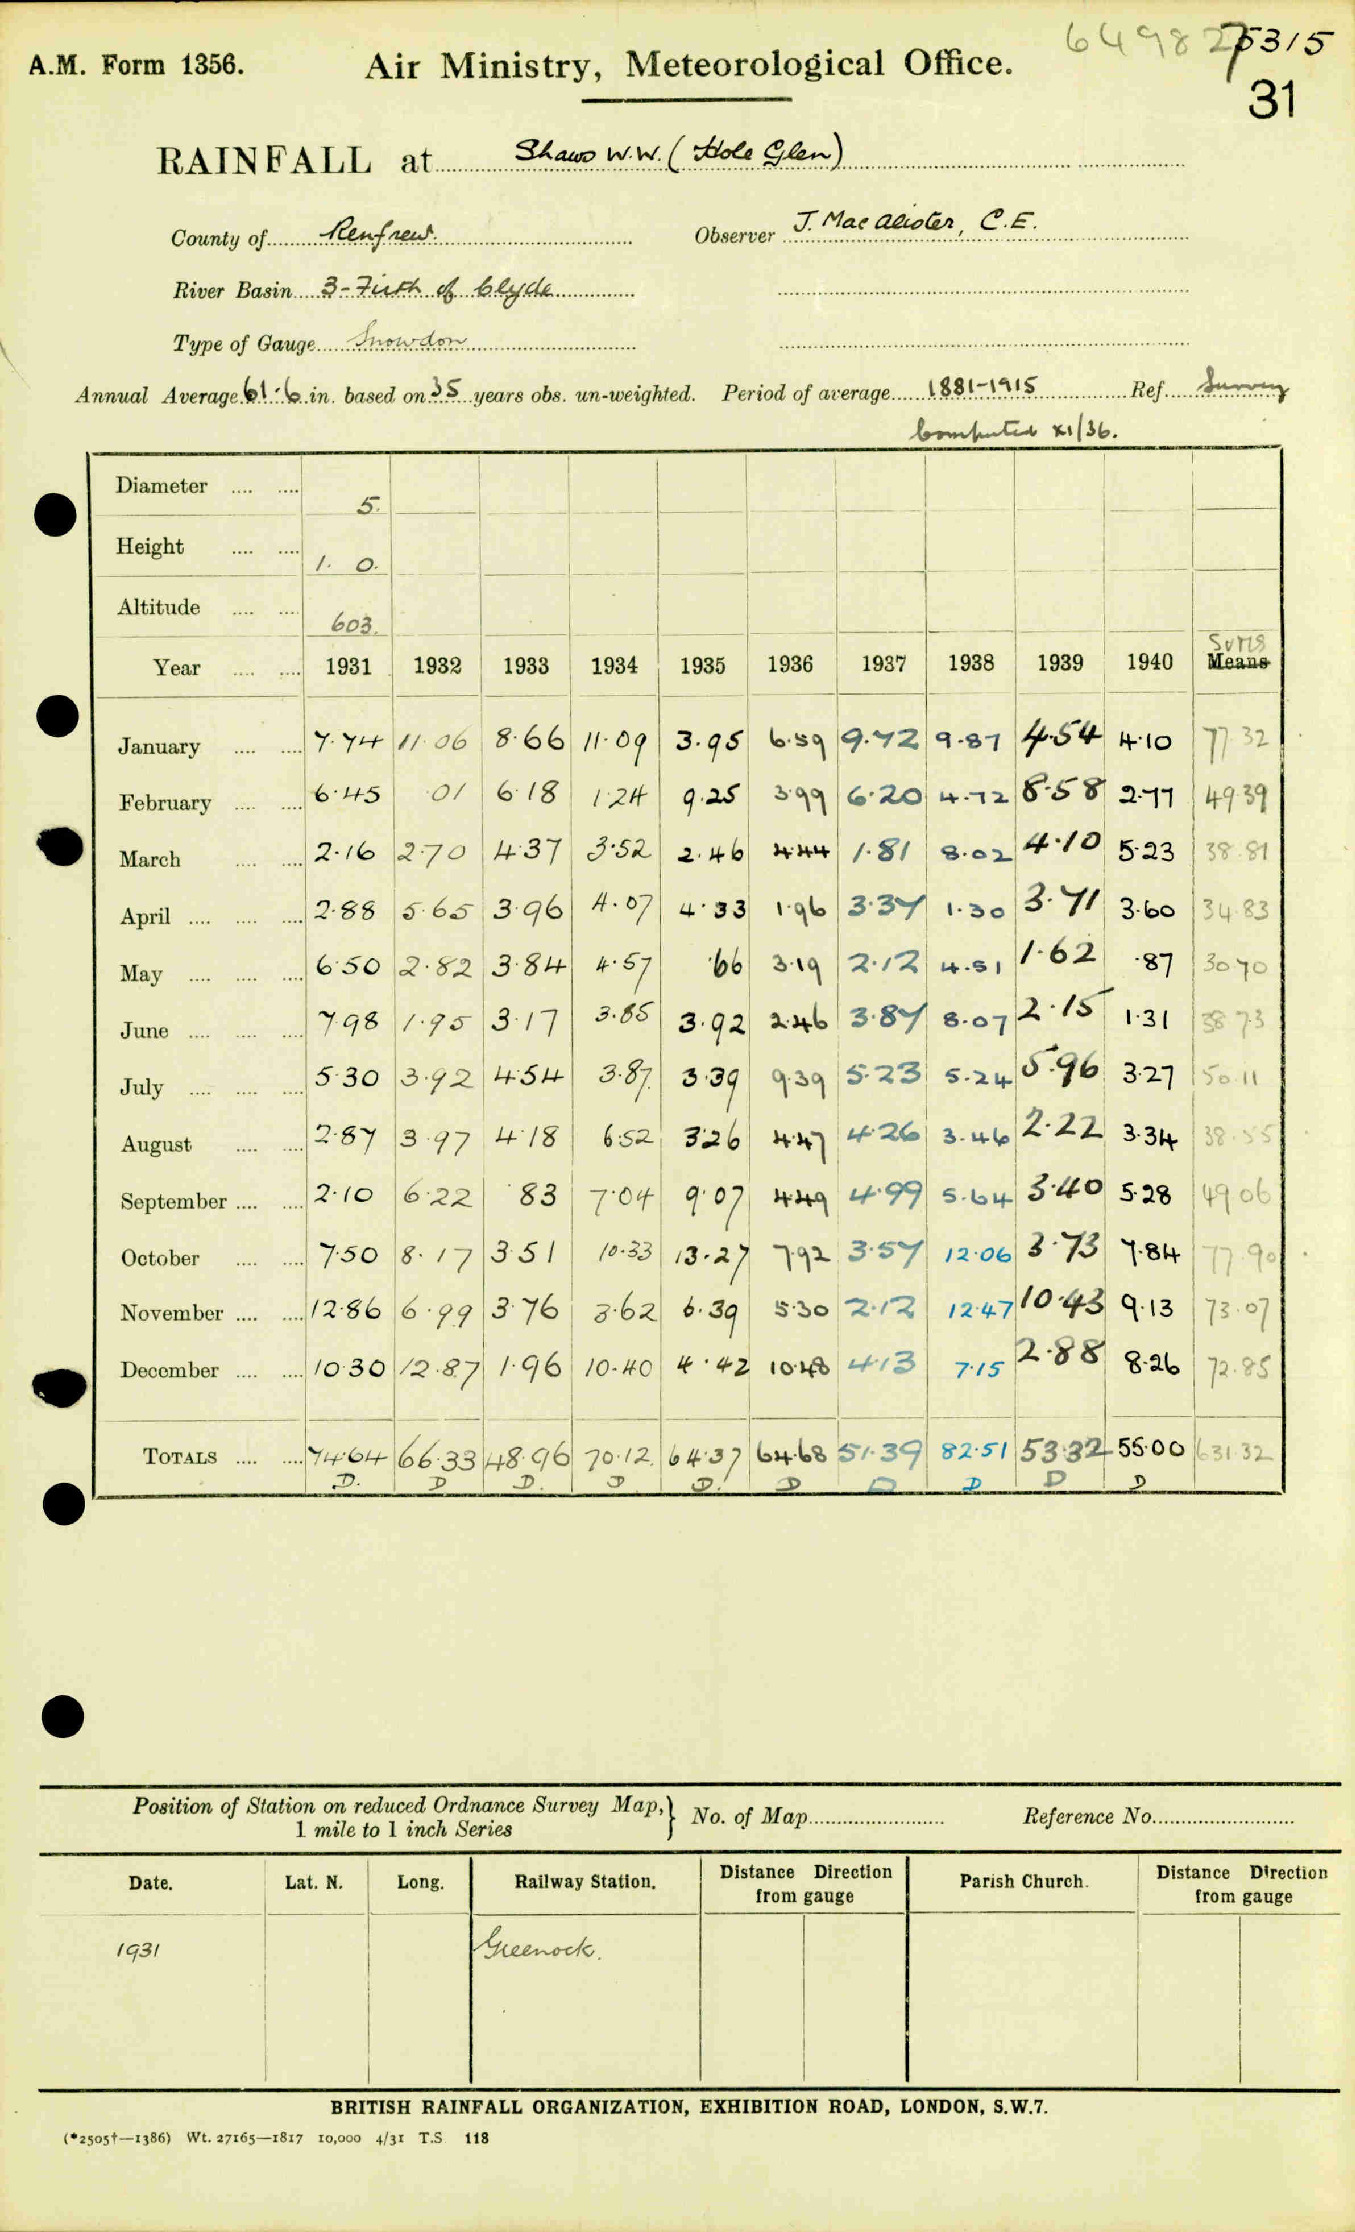 649827 5315
A.M. Form 1356. Air Ministry, Meteorological Office.
31
RAINFALL at Shaws W.W. (Hole Glen)
County of Renfrew. Observer J. MacAlister, C.E.
River Basin 3-Firth of Clyde
Type of Gauge Snowdon
Annual Average 61.6 in. based on 35 years obs. un-weighted. Period of average 1881-1915 Ref. Survey
Computed XI/36.
Diameter .... .... 5.
Height .... .... 1. 0.
Altitude .... .... 603.
Sums
Year .... .... 1931 1932 1933 1934 1935 1936 1937 1938 1939 1940 Means
January .... .... 7.74 11.06 8.66 11.09 3.95 6.59 9.72 9.87 4.54 4.10 77.32
February .... .... 6.45 .01 6.18 1.24 9.25 3.99 6.20 4.72 8.58 2.77 49.39
March .... .... 2.16 2.70 4.37 3.52 2.46 4.44 1.81 8.02 4.10 5.23 38.81
April .... .... .... 2.88 5.65 3.96 4.07 4.33 1.96 3.37 1.30 3.71 3.60 34.83
May .... .... .... 6.50 2.82 3.84 4.57 .66 3.19 2.12 4.51 1.62 .87 30.70
June .... .... .... 7.98 1.95 3.17 3.85 3.92 2.46 3.87 8.07 2.15 1.31 38.73
July .... .... .... 5.30 3.92 4.54 3.87 3.39 9.39 5.23 5.24 5.96 3.27 50.11
August .... .... 2.87 3.97 4.18 6.52 3.26 4.47 4.26 3.46 2.22 3.34 38.55
September .... .... 2.10 6.22 .83 7.04 9.07 4.49 4.99 5.64 3.40 5.28 49.06
October .... .... 7.50 8.17 3.51 10.33 13.27 7.92 3.57 12.06 3.73 7.84 77.90
November .... .... 12.86 6.99 3.76 3.62 6.39 5.30 2.12 12.47 10.43 9.13 73.07
December .... .... 10.30 12.87 1.96 10.40 4.42 10.48 4.13 7.15 2.88 8.26 72.85
TOTALS .... .... 74.64 66.33 48.96 70.12 64.37 64.68 51.39 82.51 53.32 55.00 631.32
D. D D. D D. D D D D D
Position of Station on reduced Ordnance Survey Map, } No. of Map Reference No.
1 mile to 1 inch Series
Date. Lat. N. Long. Railway Station. Distance Direction from gauge Parish Church. Distance Direction from gauge
1931 Greenock.
BRITISH RAINFALL ORGANIZATION, EXHIBITION ROAD, LONDON, S.W.7.
(*2505†—1386) Wt. 27165—1817 10,000 4/31 T.S 118